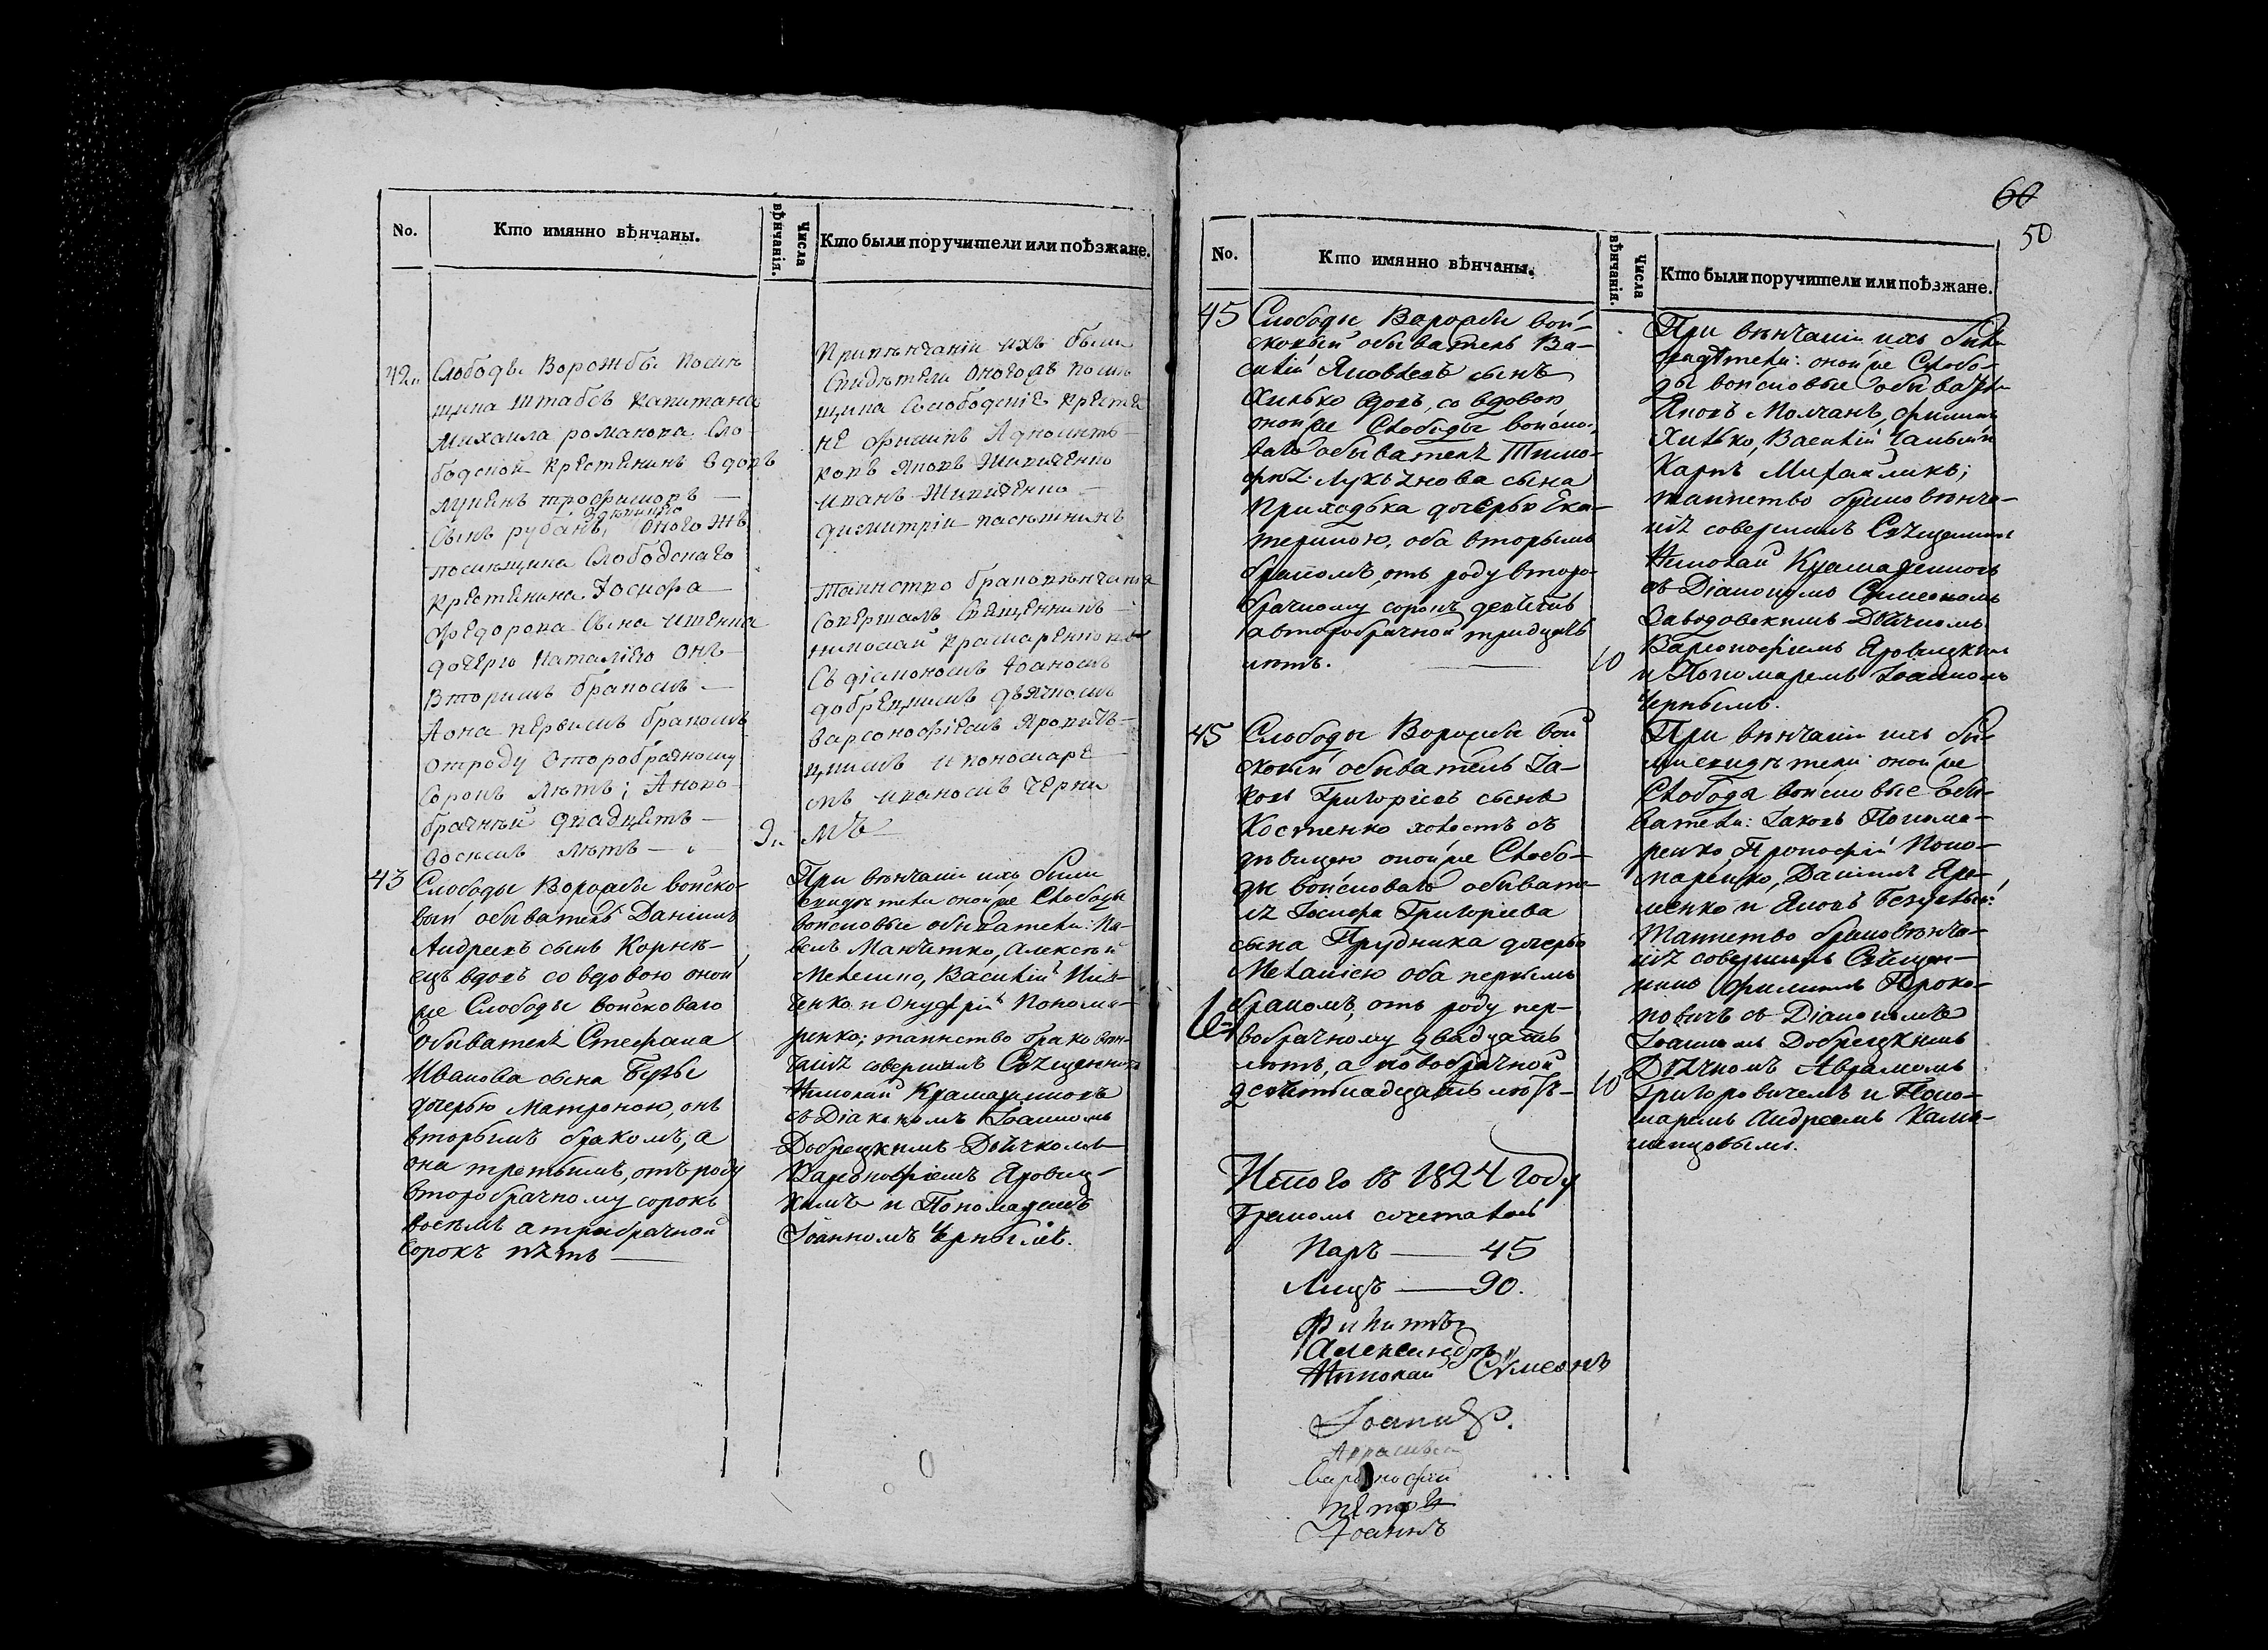 60
50
No.
Кто имянно вѣнчаны.
Числа вѣнчанія.
Кто были поручители или поѣзжане.
42
Слободы Ворожбы помѣ
щика штабсъ капитана
Михаила романова Сло
бодской крестенинъ вдовъ
лукенъ трофимовъ —
Сынъ рубанъ, оного жъ
помѣщика Слободскаго
крестенина Іосифа —
федорова Сына
дочерю Наталіею онъ
Вторимъ бракомъ —
Аона первимъ бракомъ
отроду второбрачному
Сорокъ лѣтъ; Аново
брачнѣй двадцетъ —
восемъ лѣтъ —
9
Привѣнчаніи ихъ были
Свидѣтели оногожъ помѣ
щика Слободскіе крестя
не филипъ
ковъ Яковъ
иванъ
димитріи пасѣшникъ
таинство браковѣнчанія
Совершалъ Священникъ
николай крамаренковъ
Съ діакономъ Іоаномъ
добрецкимъ дьячкомъ
варсонофіемъ Яровиц
кимъ и пономаре
мъ иваномъ черни
мъ
43
Слободы Ворожбы войско-
вый обыватель Даніилъ
Андреевъ сынъ Корнѣ-
ецъ вдовъ со вдовою оной
же Слободы войсковаго
Обывателя Стефана
Иванова сына Бузы
дочерью Матроною, онъ
вторымъ бракомъ, а
она третьимъ, отъ роду
второбрачному сорокъ
восемь а трибрачной
сорокъ пять —
При вѣнчаніи ихъ были
свидѣтели оной же Слободы
войсковые обыватели: Па-
велъ Манчитко, Алексѣй
Метелино, Василій
ченко и Онуфрій Понома-
ренко; таинство браковѣн-
чанія совершалъ Священникъ
Николай Крамаренковъ
съ Діакономъ Іоанномъ
Добрецкимъ Дьячкомъ
Варсонофіемъ Яровиц-
кимъ и Пономаремъ
Іоанномъ Чернымъ.
No.
Кто имянно вѣнчаны.
Числа вѣнчанія.
Кто были поручители или поѣзжане.
45
Слободы Ворожбы вой-
сковый обыватель Ва-
силій Яковлевъ сынъ
Хилько вдовъ, со вдовою
оной же Слободы войско-
ваго обывателя Тимо-
фея Лукьянова сына
Приходька дочерью Ека-
териною, оба вторымъ
бракомъ, отъ роду второ-
брачному сорокъ девять
а второбрачной тридцать
лѣтъ. —
10
При вѣнчаніи ихъ были
свидѣтели: оной же Слобо-
ды войсковые обыватели
Яковъ Молчанъ, филипъ
Хилько, Василій
Карпъ Михайликъ;
таинство браковѣнча-
нія совершалъ Священникъ
Николай Крамаренковъ
съ Діакономъ Симеономъ
Заводовскимъ Дьячкомъ
Варсонофіемъ Яровицкимъ
и Пономаремъ Іоанномъ
Чернымъ.
45
Слободы Ворожбы вой
сковый обыватель Іа-
ковъ Григоріевъ сынъ
Костенко холостъ съ
дѣвицею оной же Слобо-
ды войсковаго обывате-
ля Іосифа Григоріева
сына Прудника дочерью
Меланіею оба первымъ
бракомъ, отъ роду пер-
вобрачному двадцать
лѣтъ, а новобрачной
девятнадцать лѣтъ-
10
При вѣнчаніи ихъ бы-
ли свидѣтели оной же
Слободы войсковые обы-
ватели: Іаковъ Понома-
ренко, Прокофій Поно-
маренко, Даніилъ Яре-
менко и Яковъ
Таинство браковѣнча-
нія совершалъ Священ-
никъ филиппъ Проко-
повичъ съ Діакономъ
Іоанномъ Добрецкимъ
Дьячкомъ Аврамомъ
Григоровичемъ и Поно-
маремъ Андреемъ

Итого въ 1824 году
бракомъ сочеталось
Паръ — 45
Лицъ — 90.
Филиппъ
Александръ
Николай Сѵмеонъ
Іоаннъ
Варсонофій
Петръ
Іоаннъ